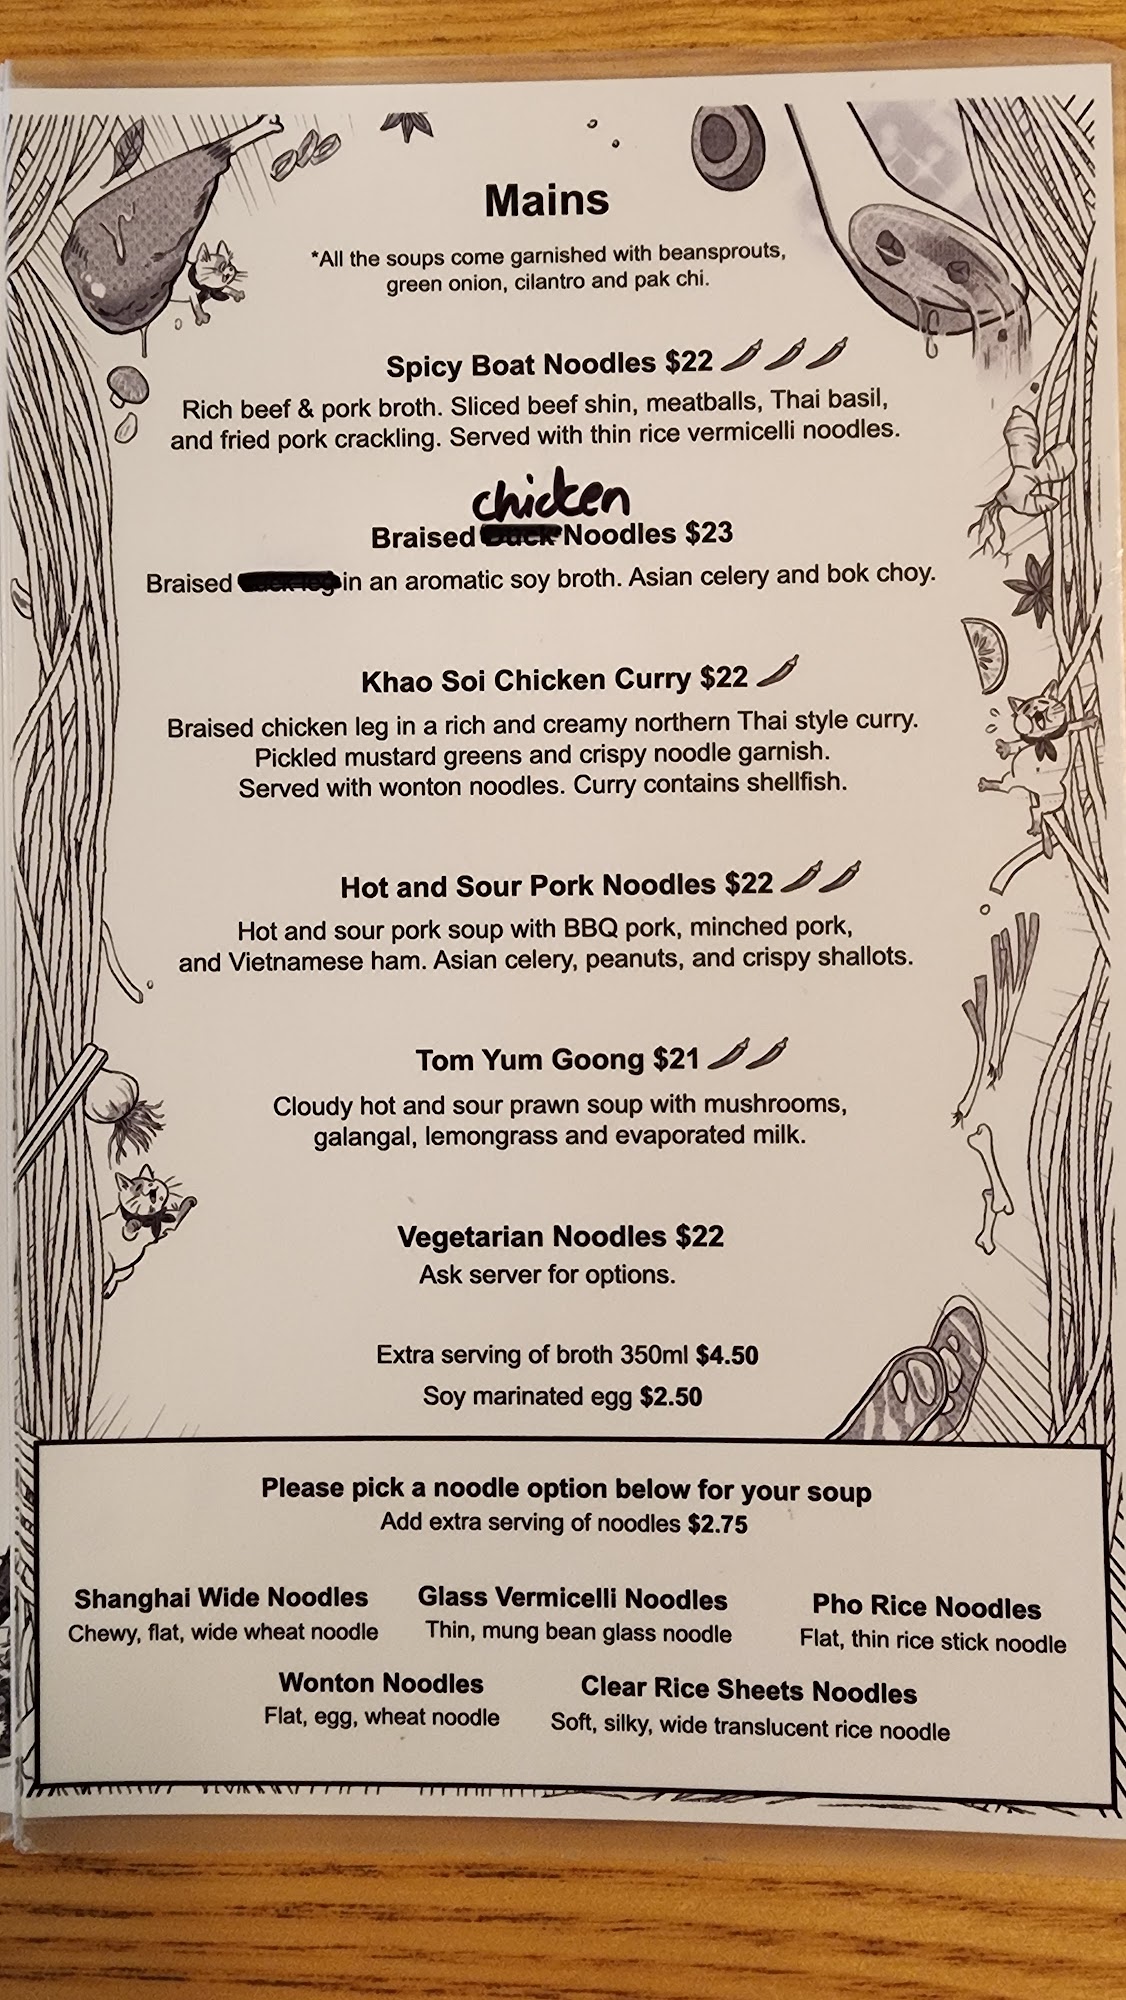 Mains
*All the soups come garnished with beansprouts,
green onion, cilantro and pak chi.
Spicy Boat Noodles $22
Rich beef & pork broth. Sliced beef shin, meatballs, Thai basil,
and fried pork crackling. Served with thin rice vermicelli noodles.
chicken
Braised Noodles $23
Braised in an aromatic soy broth. Asian celery and bok choy.
Khao Soi Chicken Curry $22
Braised chicken leg in a rich and creamy northern Thai style curry.
Pickled mustard greens and crispy noodle garnish.
Served with wonton noodles. Curry contains shellfish.
Hot and Sour Pork Noodles $22
Hot and sour pork soup with BBQ pork, minched pork,
and Vietnamese ham. Asian celery, peanuts, and crispy shallots.
Tom Yum Goong $21
Cloudy hot and sour prawn soup with mushrooms,
galangal, lemongrass and evaporated milk.
Vegetarian Noodles $22
Ask server for options.
Extra serving of broth 350ml $4.50
Soy marinated egg $2.50
Please pick a noodle option below for your soup
Add extra serving of noodles $2.75
Shanghai Wide Noodles
Chewy, flat, wide wheat noodle
Glass Vermicelli Noodles
Thin, mung bean glass noodle
Pho Rice Noodles
Flat, thin rice stick noodle
Wonton Noodles
Flat, egg, wheat noodle
Clear Rice Sheets Noodles
Soft, silky, wide translucent rice noodle